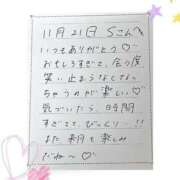 11月21日 Sさんへ
いつもありがとう♡
おもしろすぎて、会う度
笑い止まらなくなっ
ちゃうのが楽しい♡
気づいたら、8時間
すぎてて、びっくり…!!
また来月も楽しみ
だね〜♡